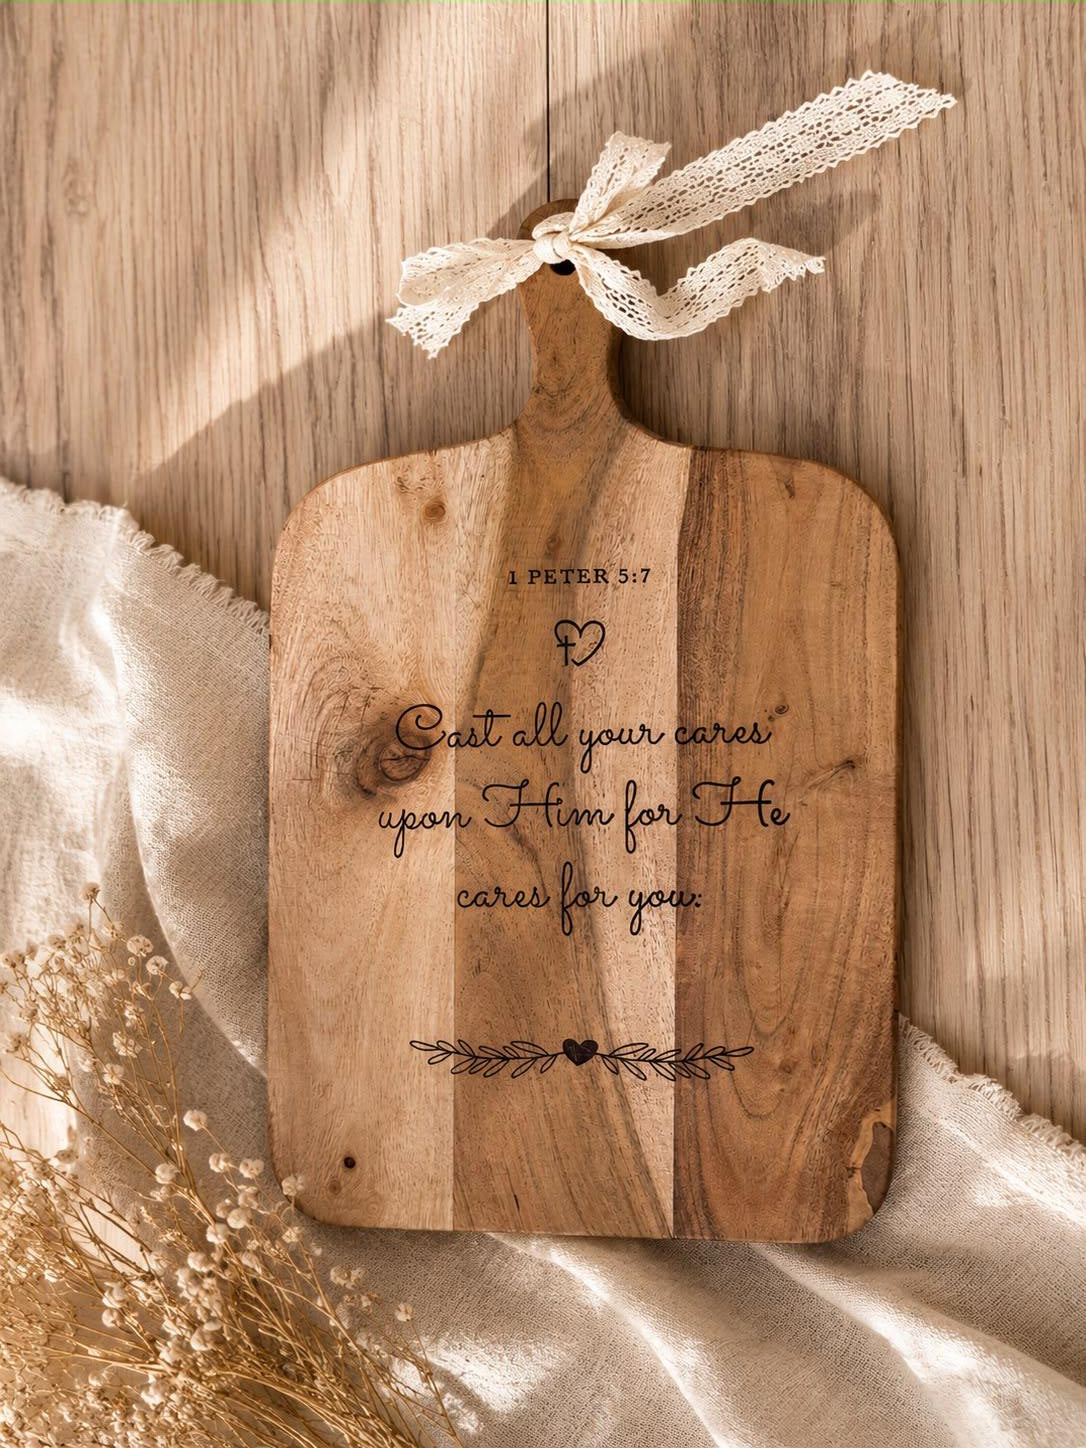 1 PETER 5:7
Cast all your cares
upon Him for He
cares for you.